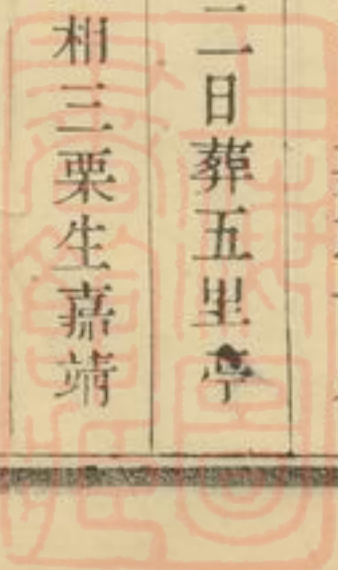 二日葬五里亭
相三栗生嘉靖